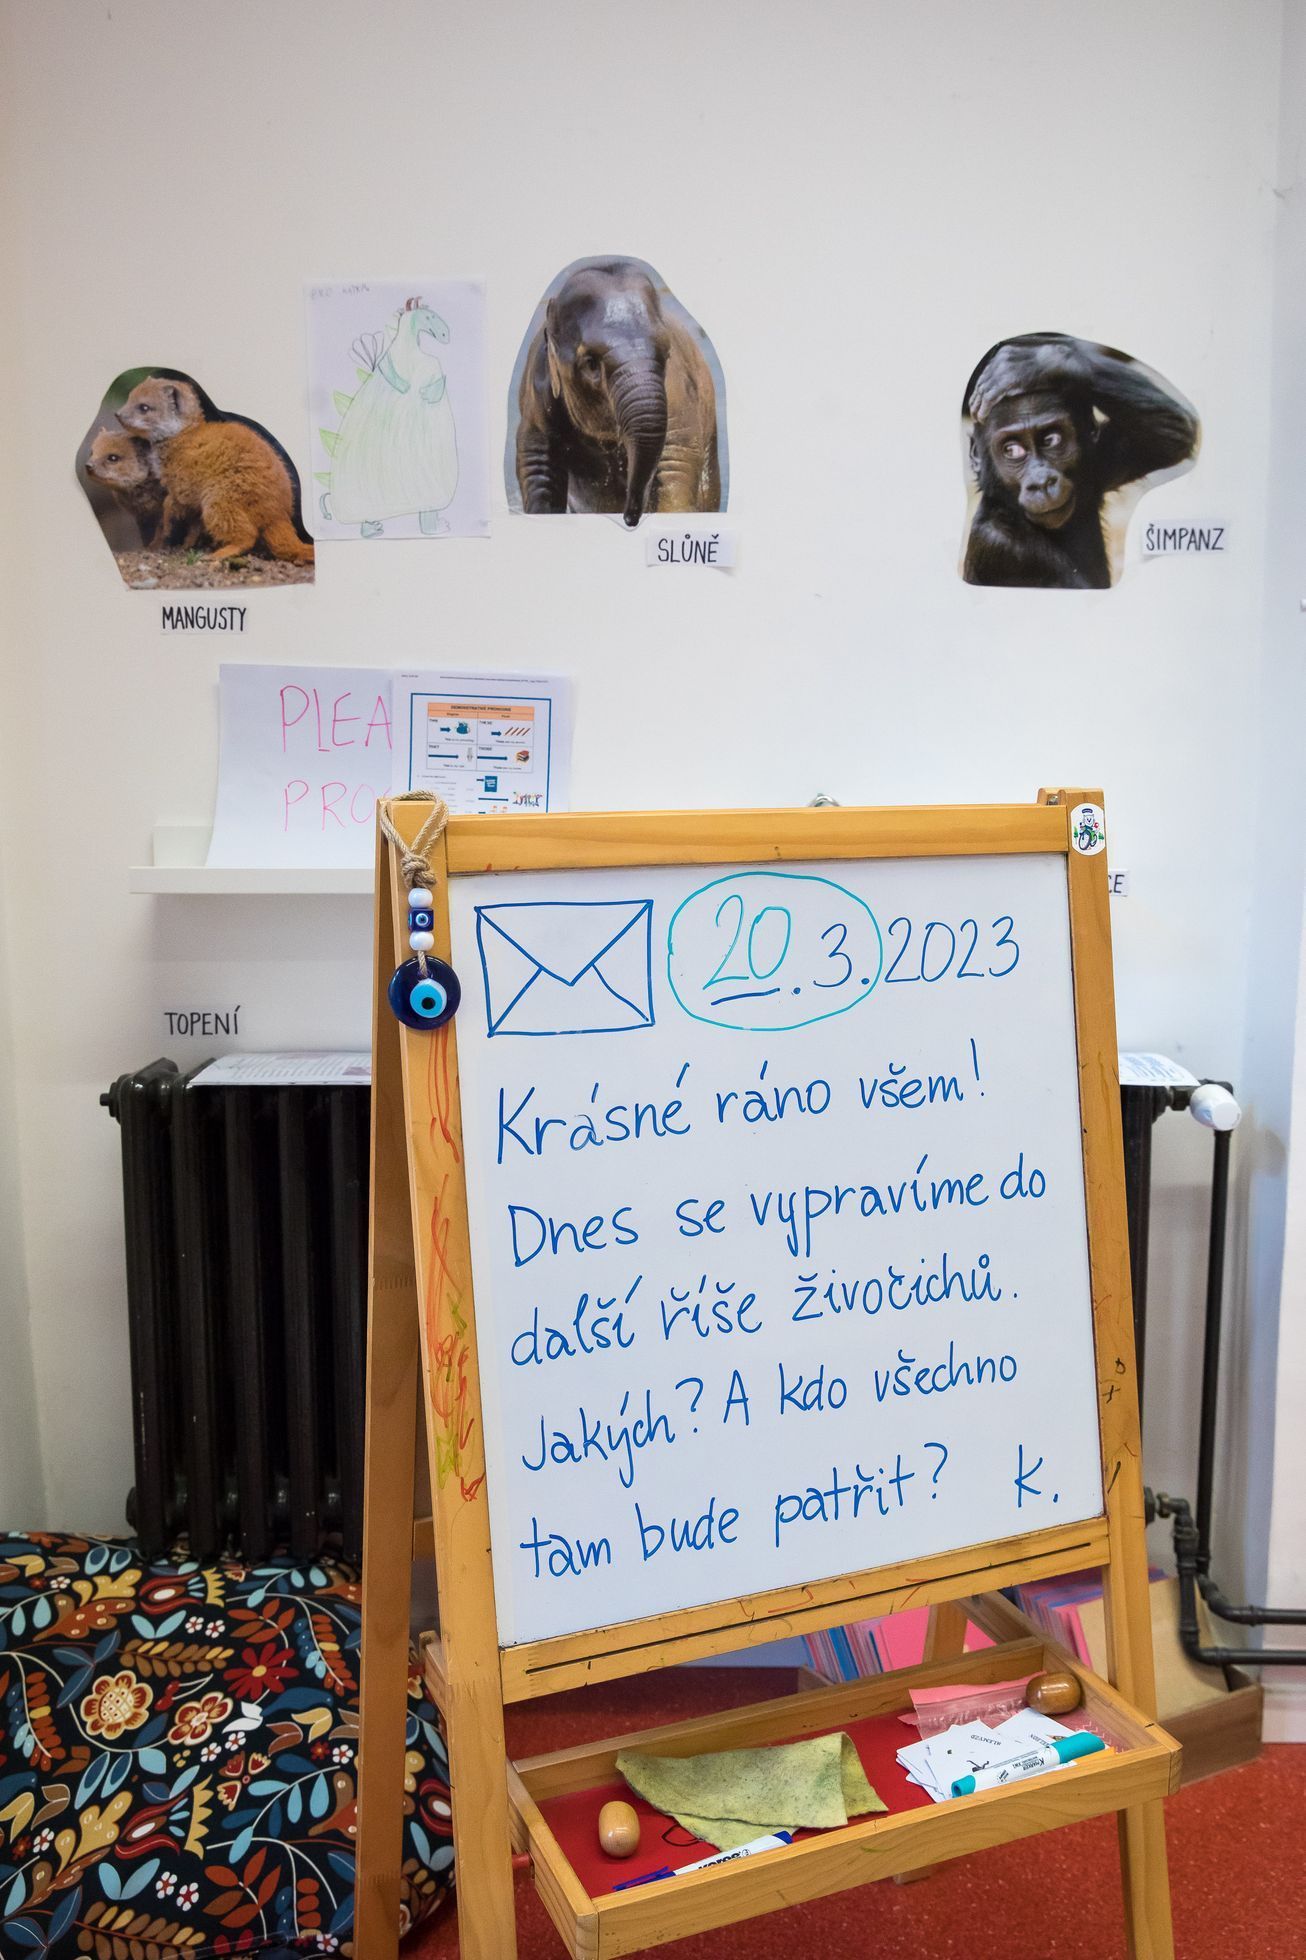 SLŮNĚ
ŠIMPANZ
MANGUSTY
PLEA
PRO
DEMONSTRATIVE PRONOUNS
TOPENÍ
CE
20.3.2023
Krásné ráno všem!
Dnes se vypravíme do
další říše živočichů.
Jakých? A kdo všechno
tam bude patřit? K.